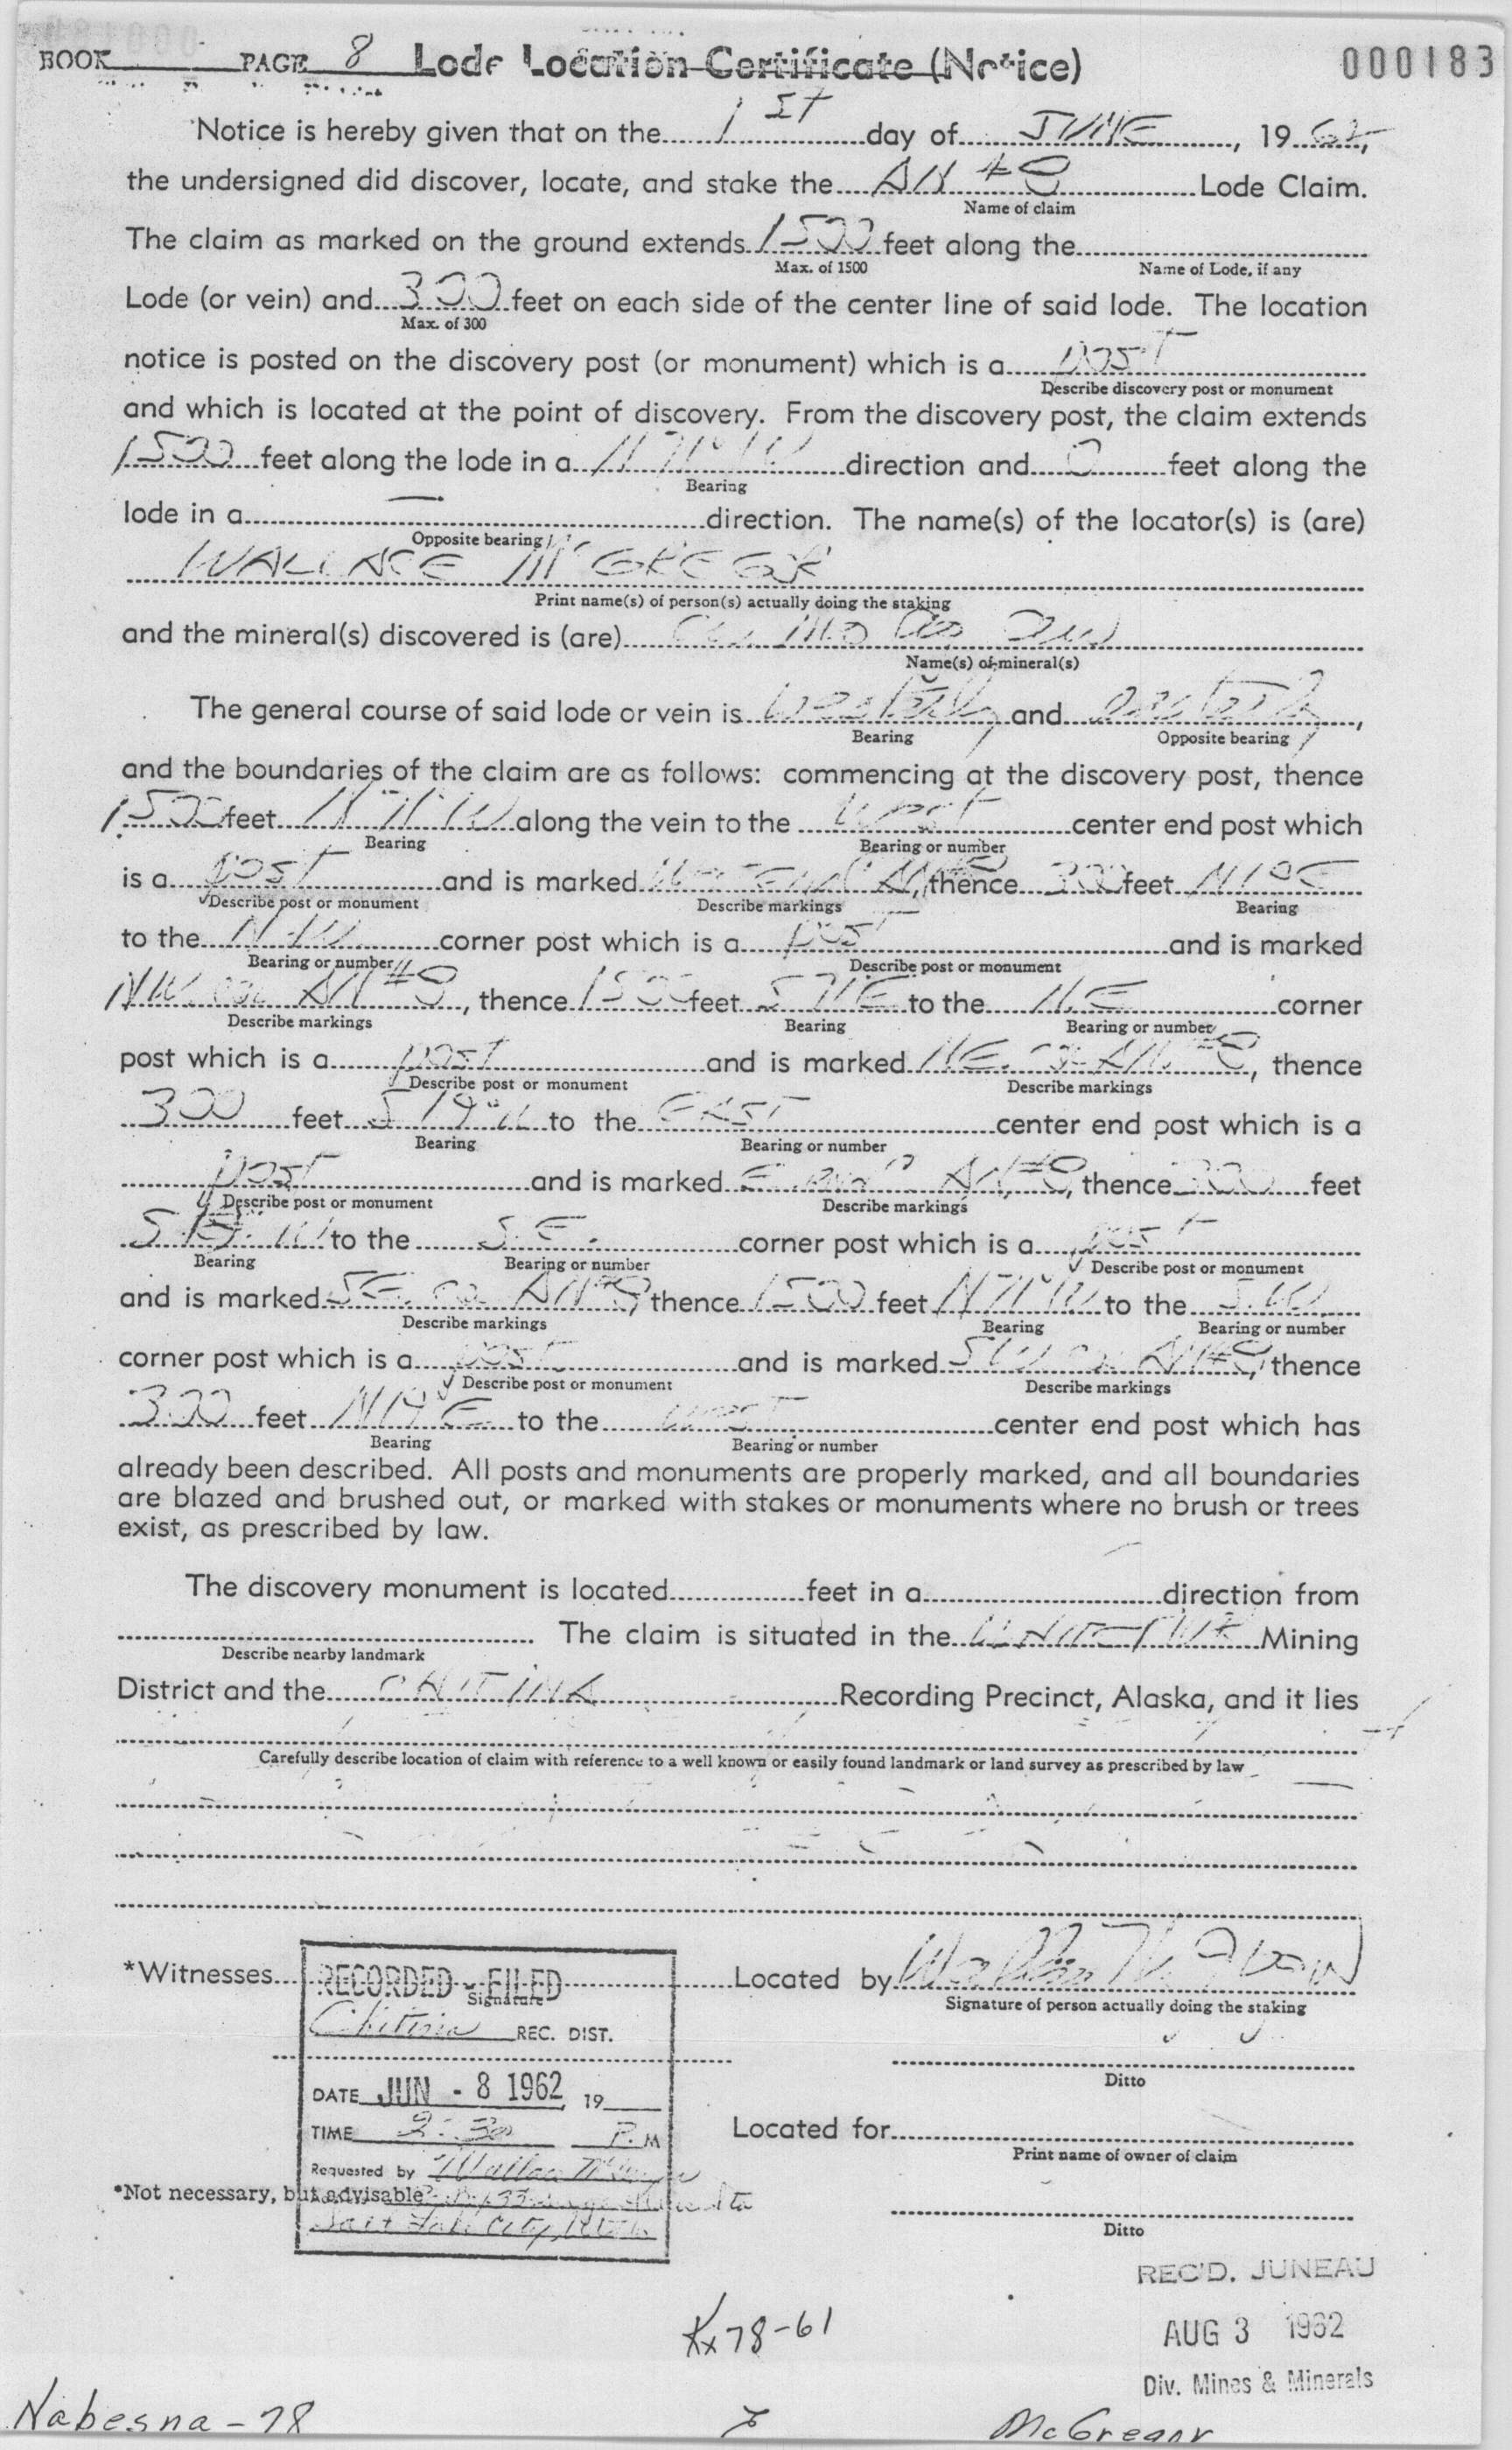 BOOK PAGE 8 Lode Location Certificate (Notice) 000183
Notice is hereby given that on the 1st day of JUNE, 1962,
the undersigned did discover, locate, and stake the AN #8 Lode Claim.
Name of claim
The claim as marked on the ground extends 1500 feet along the
Max. of 1500 Name of Lode, if any
Lode (or vein) and 300 feet on each side of the center line of said lode. The location
Max. of 300
notice is posted on the discovery post (or monument) which is a post
Describe discovery post or monument
and which is located at the point of discovery. From the discovery post, the claim extends
1500 feet along the lode in a N71W direction and 0 feet along the
Bearing
lode in a — direction. The name(s) of the locator(s) is (are)
Opposite bearing
WALLACE McGREGOR
Print name(s) of person(s) actually doing the staking
and the mineral(s) discovered is (are) Cu Mo Ag Au
Name(s) of mineral(s)
The general course of said lode or vein is westerly and easterly,
Bearing Opposite bearing
and the boundaries of the claim are as follows: commencing at the discovery post, thence
1500 feet N71W along the vein to the west center end post which
Bearing Bearing or number
is a post and is marked thence 300 feet N19E
Describe post or monument Describe markings Bearing
to the N.W. corner post which is a post and is marked
Bearing or number Describe post or monument
NW cor AN #8, thence 1500 feet S71E to the N.E. corner
Describe markings Bearing Bearing or number
post which is a post and is marked NE. cor AN #8, thence
Describe post or monument Describe markings
300 feet S19W to the EAST center end post which is a
Bearing Bearing or number
post and is marked AN #8, thence 300 feet
Describe post or monument Describe markings
S19W to the S.E. corner post which is a post
Bearing Bearing or number Describe post or monument
and is marked SE. cor AN#8, thence 1500 feet N71W to the S.W.
Describe markings Bearing Bearing or number
corner post which is a post and is marked SW cor AN#8, thence
Describe post or monument Describe markings
300 feet N19E to the west center end post which has
Bearing Bearing or number
already been described. All posts and monuments are properly marked, and all boundaries
are blazed and brushed out, or marked with stakes or monuments where no brush or trees
exist, as prescribed by law.
The discovery monument is located feet in a direction from
The claim is situated in the Mining
Describe nearby landmark
District and the CHITINA Recording Precinct, Alaska, and it lies
Carefully describe location of claim with reference to a well known or easily found landmark or land survey as prescribed by law
*Witnesses Located by Wallace McGregor
Signature Signature of person actually doing the staking
RECORDED - FILED
Chitina REC. DIST.
Ditto
DATE JUN - 8 1962 19
TIME 2:30 P.M
Located for
Print name of owner of claim
Requested by Wallace McGregor
*Not necessary, but advisable
Salt Lake City, Utah
Ditto
REC'D. JUNEAU
AUG 3 1962
Div. Mines & Minerals
Kx78-61
Nabesna-78 McGregor